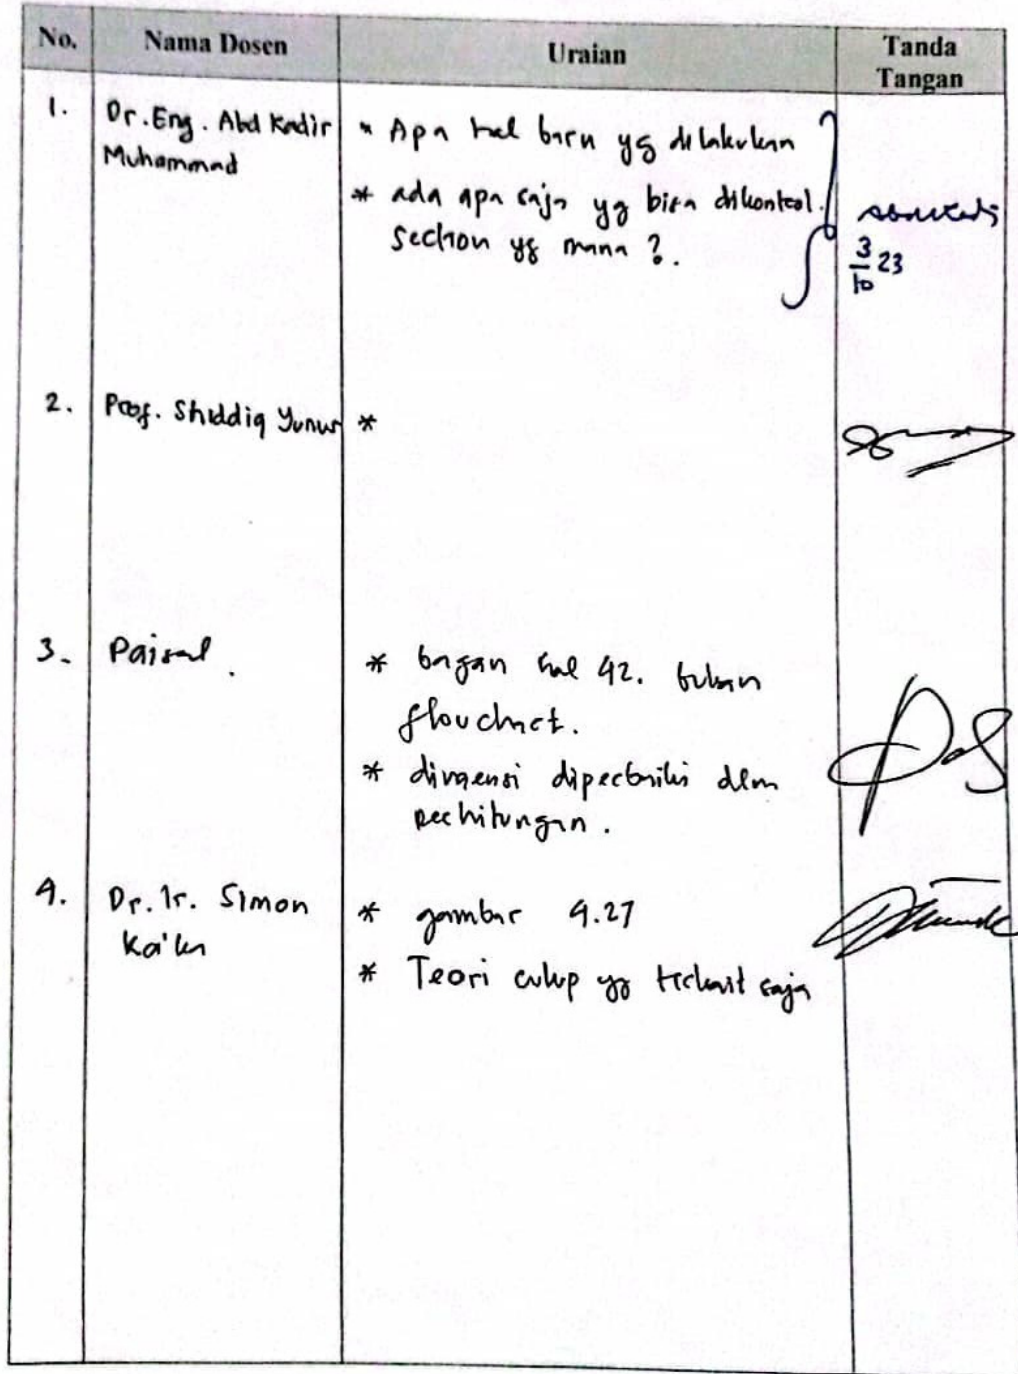 No. Nama Dosen Uraian Tanda Tangan
1. Dr. Eng. Abd Kadir Muhammad
* Apa hal baru yg dilakukan
* ada apa saja yg bisa dikontrol.
section yg mana ?.
3/10 23
2. Prof. Shiddiq Yunus *
3. Paisal.
* bagan hal 42. bukan
flowchart.
* dimensi diperbaiki dlm
perhitungan.
4. Dr. Ir. Simon Ka'ka
* gambar 4.27
* Teori cukup yg terkait saja